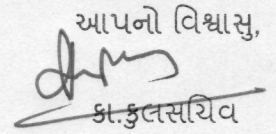 આપનો વિશ્વાસુ,
કા.કુલસચિવ